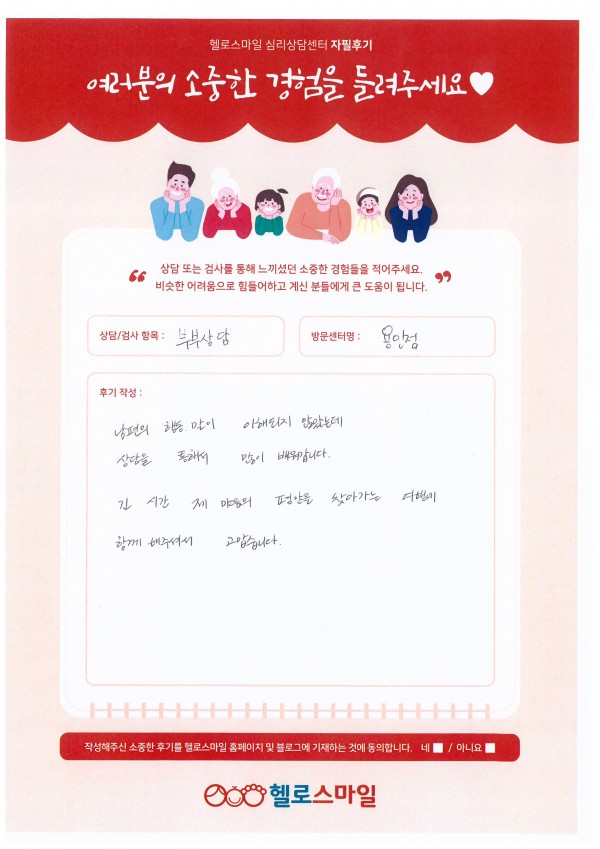 헬로스마일 심리상담센터 자필후기
여러분의 소중한 경험을 들려주세요
상담 또는 검사를 통해 느끼셨던 소중한 경험들을 적어주세요.
비슷한 어려움으로 힘들어하고 계신 분들에게 큰 도움이 됩니다.
상담/검사 항목 : 부부상담
방문센터명 : 용인점
후기 작성 :
남편의 행동, 말이 이해되지 않았는데
상담을 통해서 많이 배워갑니다.
긴 시간 제 마음의 평안을 찾아가는 여행에
함께 해주셔서 고맙습니다.
작성해주신 소중한 후기를 헬로스마일 홈페이지 및 블로그에 기재하는 것에 동의합니다. 네 / 아니요
헬로스마일